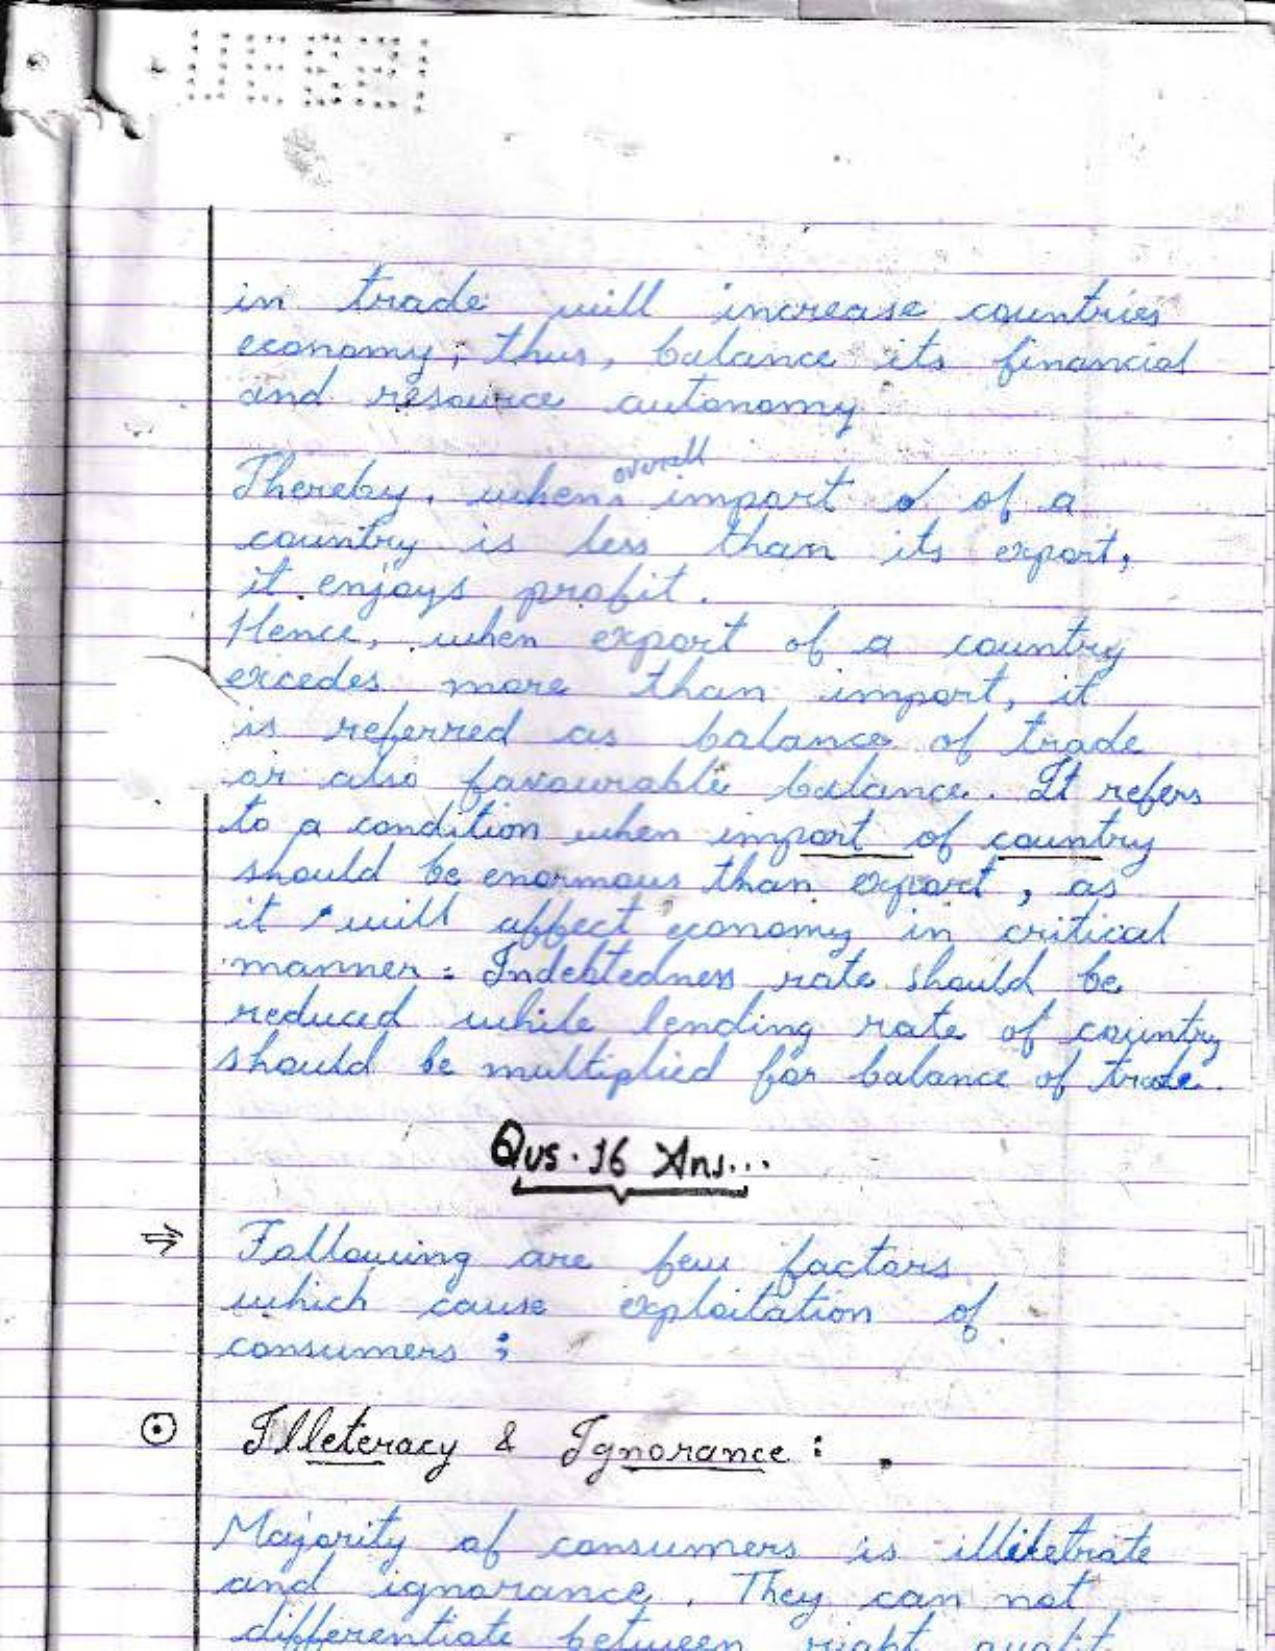 in trade will increase countries
economy, thus, balance its financial
and resource autonomy
Thereby, when overall import of a
country is less than its export,
it enjoys profit.
Hence, when export of a country
excedes more than import, it
is referred as balance of trade
or also favourable balance. It refers
to a condition when import of country
should be enormous than export, as
it will affect economy in critical
manner. Indebtedness rate should be
reduced while lending rate of country
should be multiplied for balance of trade.
Qus. 16 Ans...
⇒ Following are few factors
which cause exploitation of
consumers :
⊙ Illeteracy & Ignorance :
Majority of consumers is illiletrate
and ignorance. They can not
differentiate between right qualit